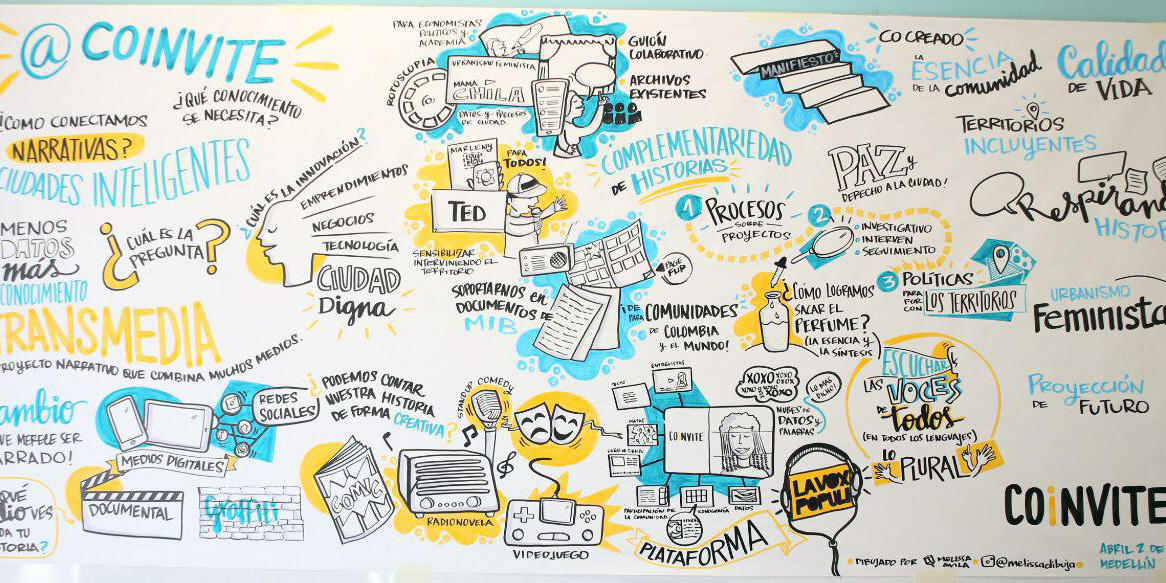 @COINVITE
¿CÓMO CONECTAMOS
NARRATIVAS?
¿QUÉ CONOCIMIENTO
SE NECESITA?
CIUDADES INTELIGENTES
MENOS
DATOS
más
CONOCIMIENTO
¿CUÁL ES LA
PREGUNTA?
¿CUÁL ES LA INNOVACIÓN?
EMPRENDIMIENTOS
NEGOCIOS
TECNOLOGÍA
CIUDAD
Digna
TRANSMEDIA
PROYECTO NARRATIVO QUE COMBINA MUCHOS MEDIOS.
MERECE SER
REDES
SOCIALES
MEDIOS DIGITALES
DOCUMENTAL
Graffiti
¿PODEMOS CONTAR
NUESTRA HISTORIA
DE FORMA CREATIVA?
COMIC
STANDUP COMEDY
RADIONOVELA
VIDEOJUEGO
PARA ECONOMISTAS
POLÍTICOS y
ACADEMIA
ROTOSCOPIA
URBANISMO FEMINISTA
MAMÁ
CHILA
DATOS y PROCESOS
DE CIUDAD
GUIÓN
COLABORATIVO.
ARCHIVOS
EXISTENTES
MARLENY
PARA
TODOS!
TED
SENSIBILIZAR
INTERVINIENDO EL
TERRITORIO
SOPORTARNOS en
DOCUMENTOS DE
MIB
PAGE
FLIP
¡DE PARA COMUNIDADES
DE COLOMBIA
y EL MUNDO!
COMPLEMENTARIEDAD
DE HISTORIAS
MANIFIESTO
CO CREADO
LA
ESENCIA
DE LA comunidad
Calidad
DE VIDA
TERRITORIOS
INCLUYENTES
PAZ y
DERECHO A LA CIUDAD!
Respirando
1 PROCESOS
SOBRE
PROYECTOS
2
INVESTIGATIVO
INTERVEN
SEGUIMIENTO
3 POLÍTICAS
PARA
POR
CON
LOS TERRITORIOS
URBANISMO
Feminista
¿CÓMO LOGRAMOS
SACAR EL
PERFUME?
(LA ESENCIA y
LA SÍNTESIS)
ESCUCHAR
LAS
VOCES
DE todos
(EN TODOS LOS LENGUAJES)
LO PLURAL
PROYECCIÓN
DE FUTURO
ENTREVISTAS
TEXTO
MAPAS
COINVITE
XOXO
NUBES DE
DATOS y
PALABRAS
LO MÁS
DICHO
PARTICIPACIÓN DE
LA COMUNIDAD
ICONOGRAFÍA
DATOS
PLATAFORMA
LA VOX
POPULI
COiNVITE
DIBUJADO POR MELISSA
AVILA
@melissadibuja
ABRIL 2 DE
MEDELLÍN